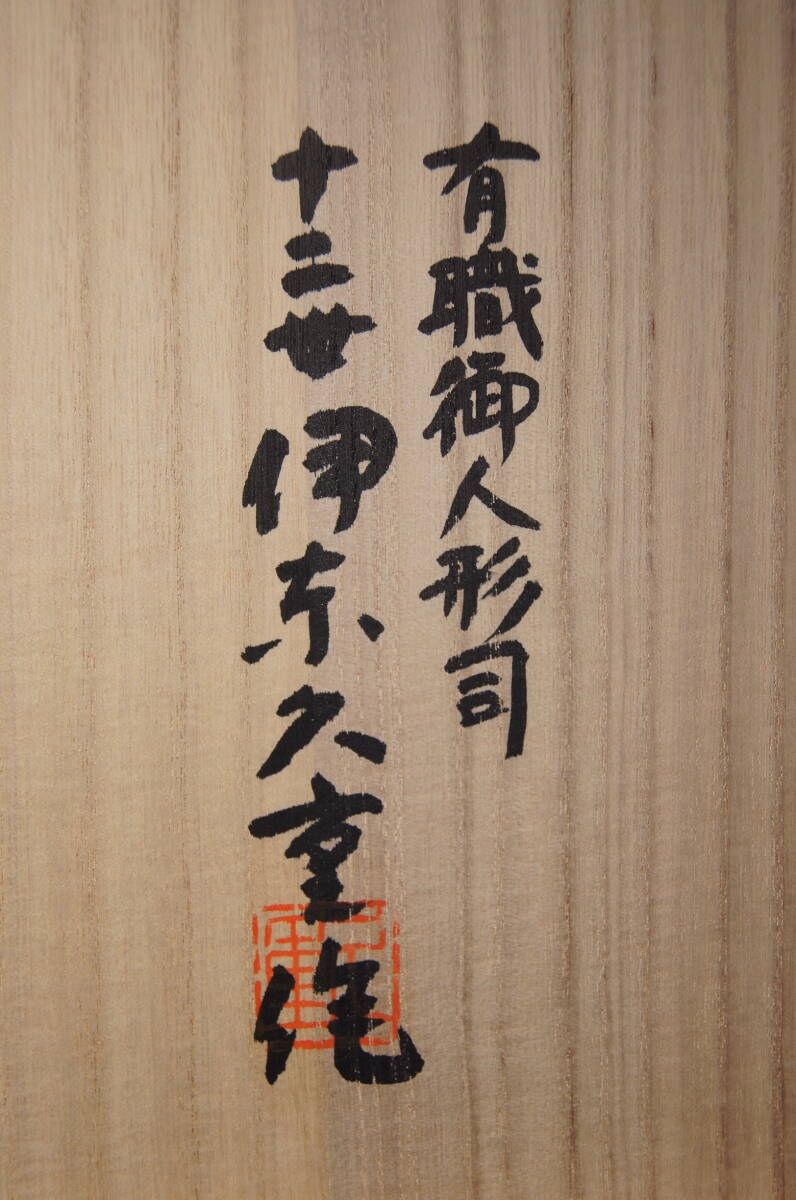 有職御人形司
十二世伊東久重作